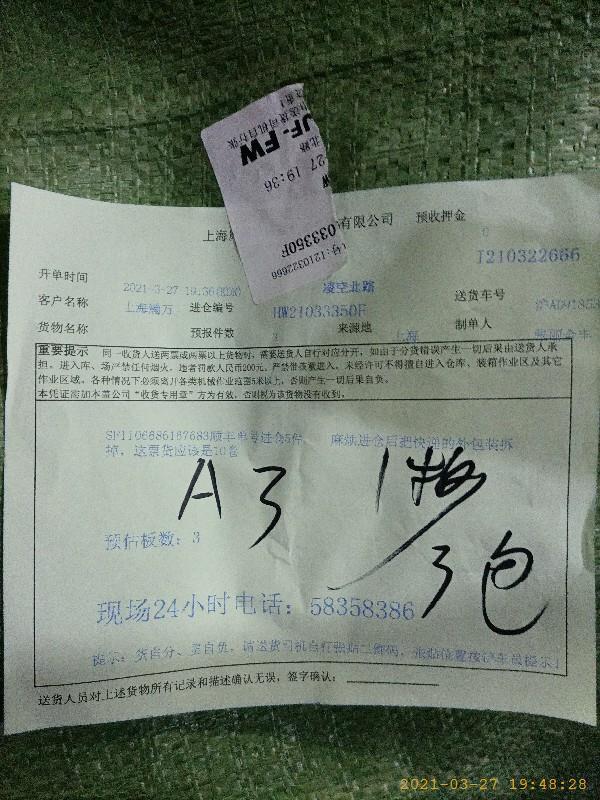 JF-FW
27 19:36
033350F
I210322666
上海
有限公司
预收押金
0
I210322666
开单时间
2021-3-27 19:36
凌空北路
送货车号
沪AD91853
客户名称
进仓编号
HW21033350F
货物名称
预报件数
3
来源地
上海
制单人
重要提示 同一收货人送两票或两票以上货物时，需要送货人自行对应分开，如由于分货错误产生一切后果由送货人承
担。进入库、场严禁任何烟火，违者罚款人民币200元。严禁带孩童进入。未经许可不得擅自进入仓库、装箱作业区及其它
作业区域。各种情况下必须离开各类机械作业范围5米以上，否则产生一切后果自负。
本凭证需加本盖公司“收货专用章”方为有效。否则视为该货物没有收到。
SF1106686167683顺丰单号进仓5件， 麻烦进仓后把快递的外包装拆
掉，这票货应该是10套
A3 1板
3包
预估板数：3
现场24小时电话：58358386
提示：货自分、卖自负，请送货司机自行张贴二维码，张贴位置按汽车员提示！
送货人员对上述货物所有记录和描述确认无误，签字确认：
2021-03-27 19:48:28